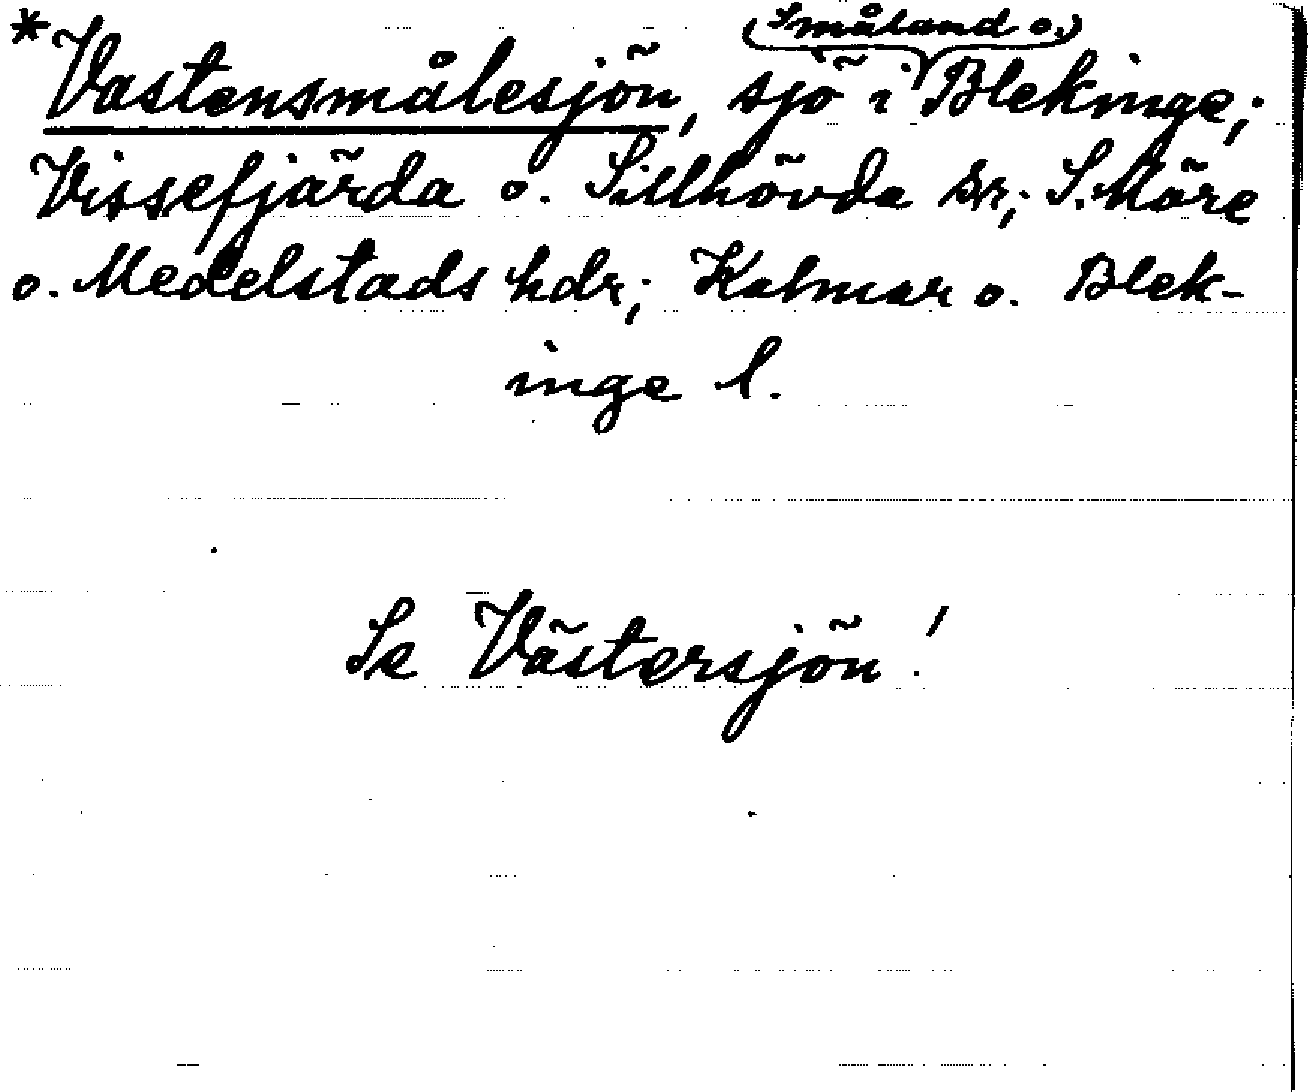 (Småland o.)
*Vastensmålesjön, sjö i Blekinge;
Vissefjärda o. Sillhövda sn; S. Möre
o. Medelstads hdr; Kalmar o. Blek-
inge l.
Se Västersjön!